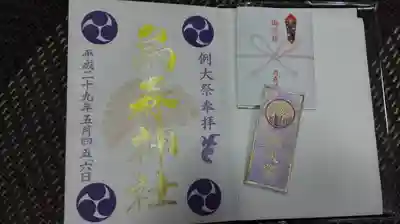 例大祭奉拝
烏森神社
平成二十九年五月四五六日